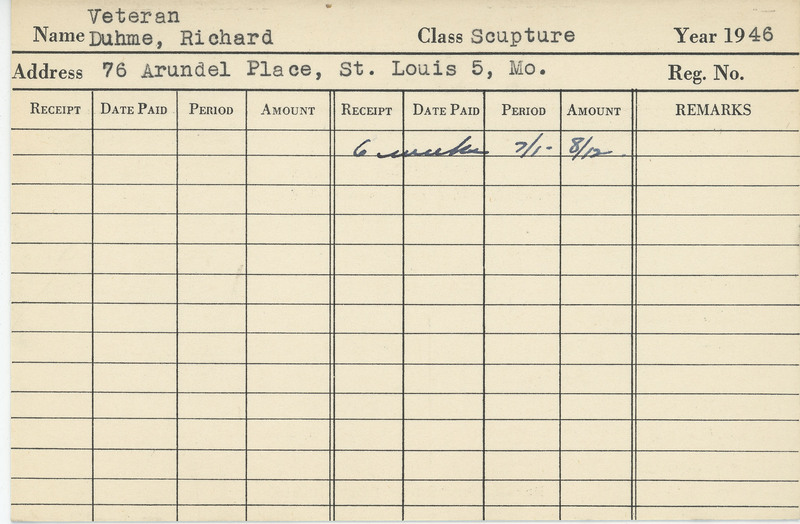 Veteran
Name Duhme, Richard Class Scupture Year 1946
Address 76 Arundel Place, St. Louis 5, Mo. Reg. No.
RECEIPT DATE PAID PERIOD AMOUNT RECEIPT DATE PAID PERIOD AMOUNT REMARKS
6 weeks 7/1- 8/12